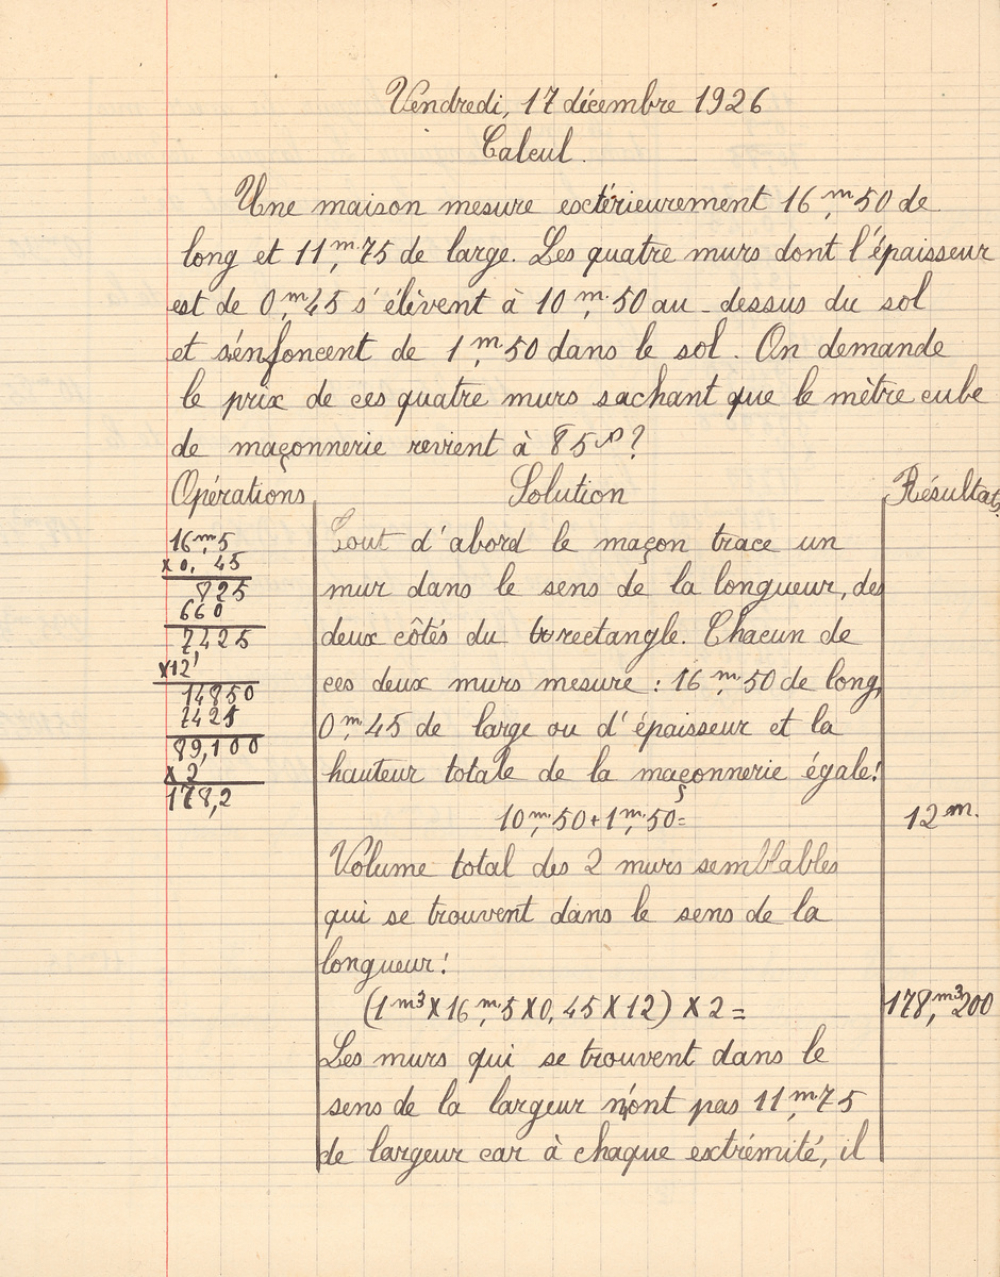 Vendredi, 17 décembre 1926
Calcul.
Une maison mesure extérieurement 16,m50 de
long et 11,m75 de large. Les quatre murs dont l'épaisseur
est de 0,m45 s'élèvent à 10,m50 au-dessus du sol
et s'enfoncent de 1,m50 dans le sol. On demande
le prix de ces quatre murs sachant que le mètre cube
de maçonnerie revient à 85f?
Opérations
Solution
Résultats
16,m5
x 0,45
825
660
7,425
x12
14850
7425
89,100
x 2
178,2
Tout d'abord le maçon trace un
mur dans le sens de la longueur, des
deux côtés du rectangle. Chacun de
ces deux murs mesure : 16,m50 de long,
0,m45 de large ou d'épaisseur et la
hauteur totale de la maçonnerie égale:
10,m50+1,m50= 12 m.
Volume total des 2 murs semblables
qui se trouvent dans le sens de la
longueur:
(1m3 X 16,m5 X 0,45 X 12) X 2 = 178,m3200
Les murs qui se trouvent dans le
sens de la largeur n'ont pas 11,m75
de largeur car à chaque extrémité, il